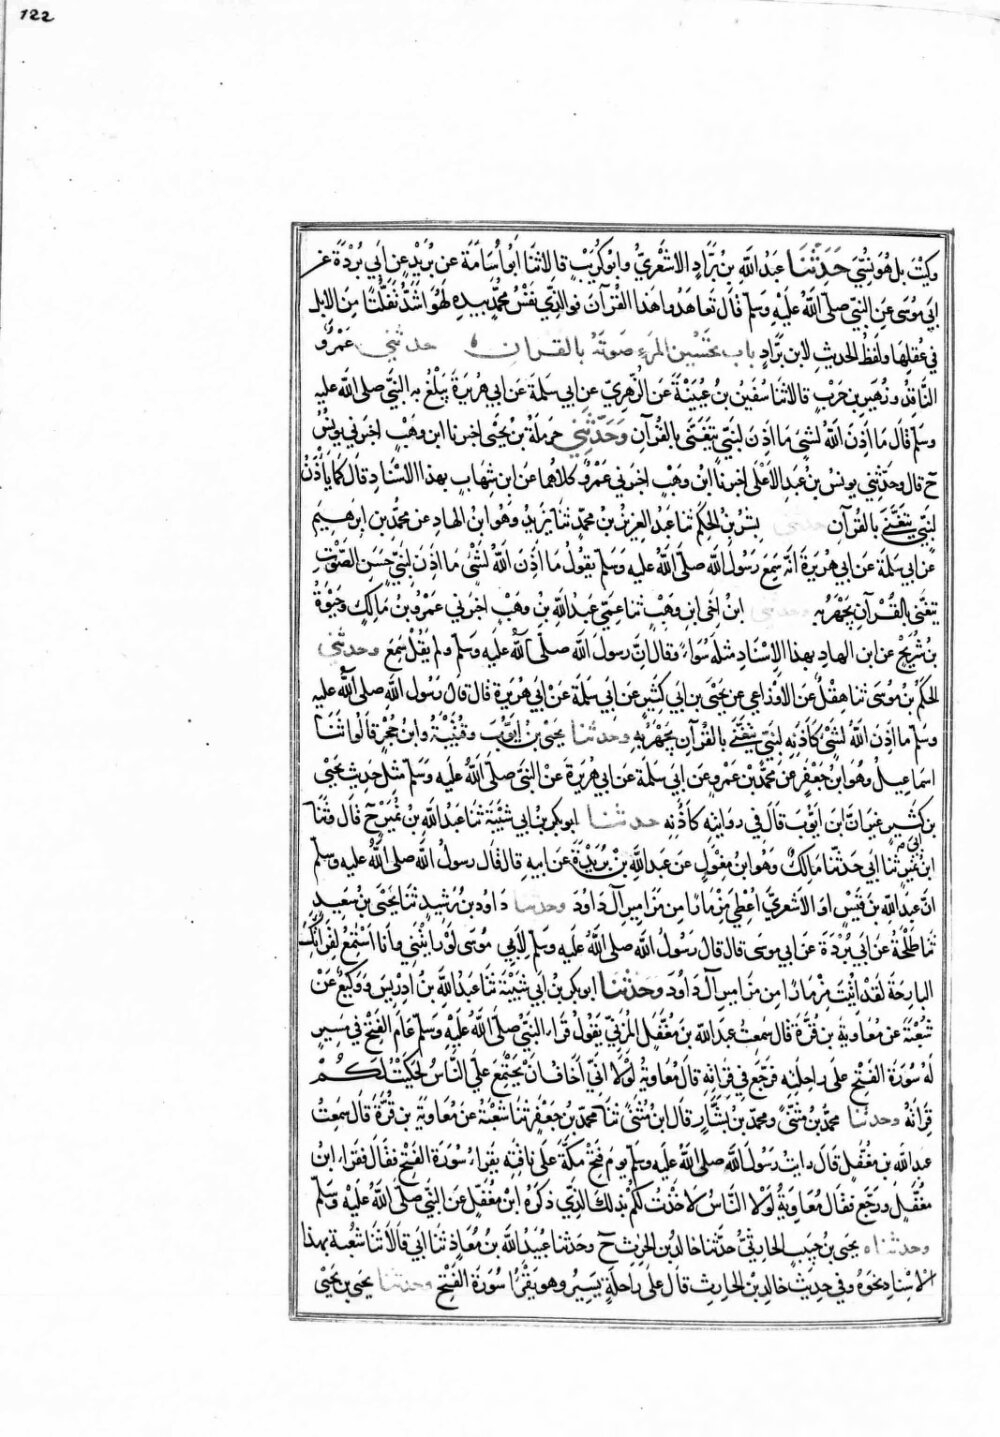 122
وكيت بل هو نسي حَدَّثَنَا عبد الله بن برَّادٍ الاشعريُّ وابو كريب قالا ثنا ابو أسامة عن بُرَيْدٍ عن ابي بُرْدَة عن
ابي موسى عن النبي صلى الله عليه وسلم قال تعاهدوا هذا القرآن فوالذي نفس محمد بيده لهو اشد تفلُّتًا من الابل
في عقلها ولفظ الحديث لابن برّادٍ باب تحسين المرء صوته بالقران حدثني عمرو
الناقد وزهير بن حرب قالا ثنا سفين بن عيينة عن الزهري عن ابي سلمة عن ابي هريرة يبلغ به النبي صلى الله عليه
وسلم قال ما اَذِنَ الله لشيء ما اَذِنَ لنبيّ يتغنى بالقرآن وحَدَّثَنِي حرملة بن يحيى اخبرنا ابن وهب اخبرني يونس
ح قال وحدثني يونس بن عبد الأعلى اخبرنا ابن وهب اخبرني عمرو كلاهما عن ابن شهاب بهذا الاسناد قال كما يأذن
لنبي يتغنى بالقرآن حدثني بشر بن الحكم ثنا عبد العزيز بن محمد ثنا يزيد وهو ابن الهاد عن محمد بن ابرهيم
عن ابي سلمة عن ابي هريرة انه سمع رسول الله صلى الله عليه وسلم يقول ما اذن الله لشيء ما اذن لنبي حسن الصوت
يتغنى بالقرآن يجهر به وحدثني ابن اخي ابن وهب ثنا عمي عبد الله بن وهب اخبرني عمرو بن مالك وحيوة
بن شريح عن ابن الهاد بهذا الإسناد مثله سواءً وقال ان رسول الله صلى الله عليه وسلم ولم يقل سمع وحدثني
الحكم بن موسى ثنا هقل عن الاوزاعي عن يحيى بن ابي كثير عن ابي سلمة عن ابي هريرة قال قال رسول الله صلى الله عليه
وسلم ما اذن الله لشيء كأذنه لنبي يتغنى بالقرآن يجهر به وحدثنا يحيى بن ايوب وقتيبة وابن حجر قالوا ثنا
اسماعيل وهو ابن جعفر عن محمد بن عمرو عن ابي سلمة عن ابي هريرة عن النبي صلى الله عليه وسلم مثل حديث يحيى
بن كثير غير ان ابن ايوب قال في روايته كأذنه حدثنا ابو بكر بن ابي شيبة ثنا عبد الله بن نمير ح قال وثنا
ابن نمير ثنا ابي حدثنا مالك وهو ابن مغول عن عبد الله بن بريدة عن ابيه قال قال رسول الله صلى الله عليه وسلم
ان عبد الله بن قيس او الاشعري اعطي مزمارًا من مزامير آل داود وحدثنا داود بن رشيد ثنا يحيى بن سعيد
ثنا طلحة عن ابي بردة عن ابي موسى قال قال رسول الله صلى الله عليه وسلم لأبي موسى لو رايتني وانا استمع لقرائتك
البارحة لقد اتيت مزمارًا من مزامير آل داود وحدثنا ابو بكر بن ابي شيبة ثنا عبد الله بن ادريس ووكيع عن
شعبة عن معاوية بن قرة قال سمعت عبد الله بن مغفل المزني يقول قراء النبي صلى الله عليه وسلم عام الفتح في مسيرٍ
له سورة الفتح على راحلته فرجّع في قراته قال معاوية لولا اني اخاف ان يجتمع علي الناس لحكيت لكم
قراته وحدثنا محمد بن مثنى ومحمد بن بشار قال ابن مثنى ثنا محمد بن جعفر ثنا شعبة عن معاوية بن قرة قال سمعت
عبد الله بن مغفل قال رايت رسول الله صلى الله عليه وسلم يوم فتح مكة على ناقته يقراء سورة الفتح فقال فقراء ابن
مغفل ورجّع فقال معاوية لولا الناس لاخذت لكم بذلك الذي ذكره ابن مغفل عن النبي صلى الله عليه وسلم
وحدثناه يحيى بن حبيب الحارثي حدثنا خالد بن الحرث ح وحدثنا عبيد الله بن معاذ ثنا ابي قالا ثنا شعبة بهذا
الاسناد نحوه وفي حديث خالد بن الحارث قال على راحلة يسير وهو يقرأ سورة الفتح وحدثنا يحيى بن يحيى